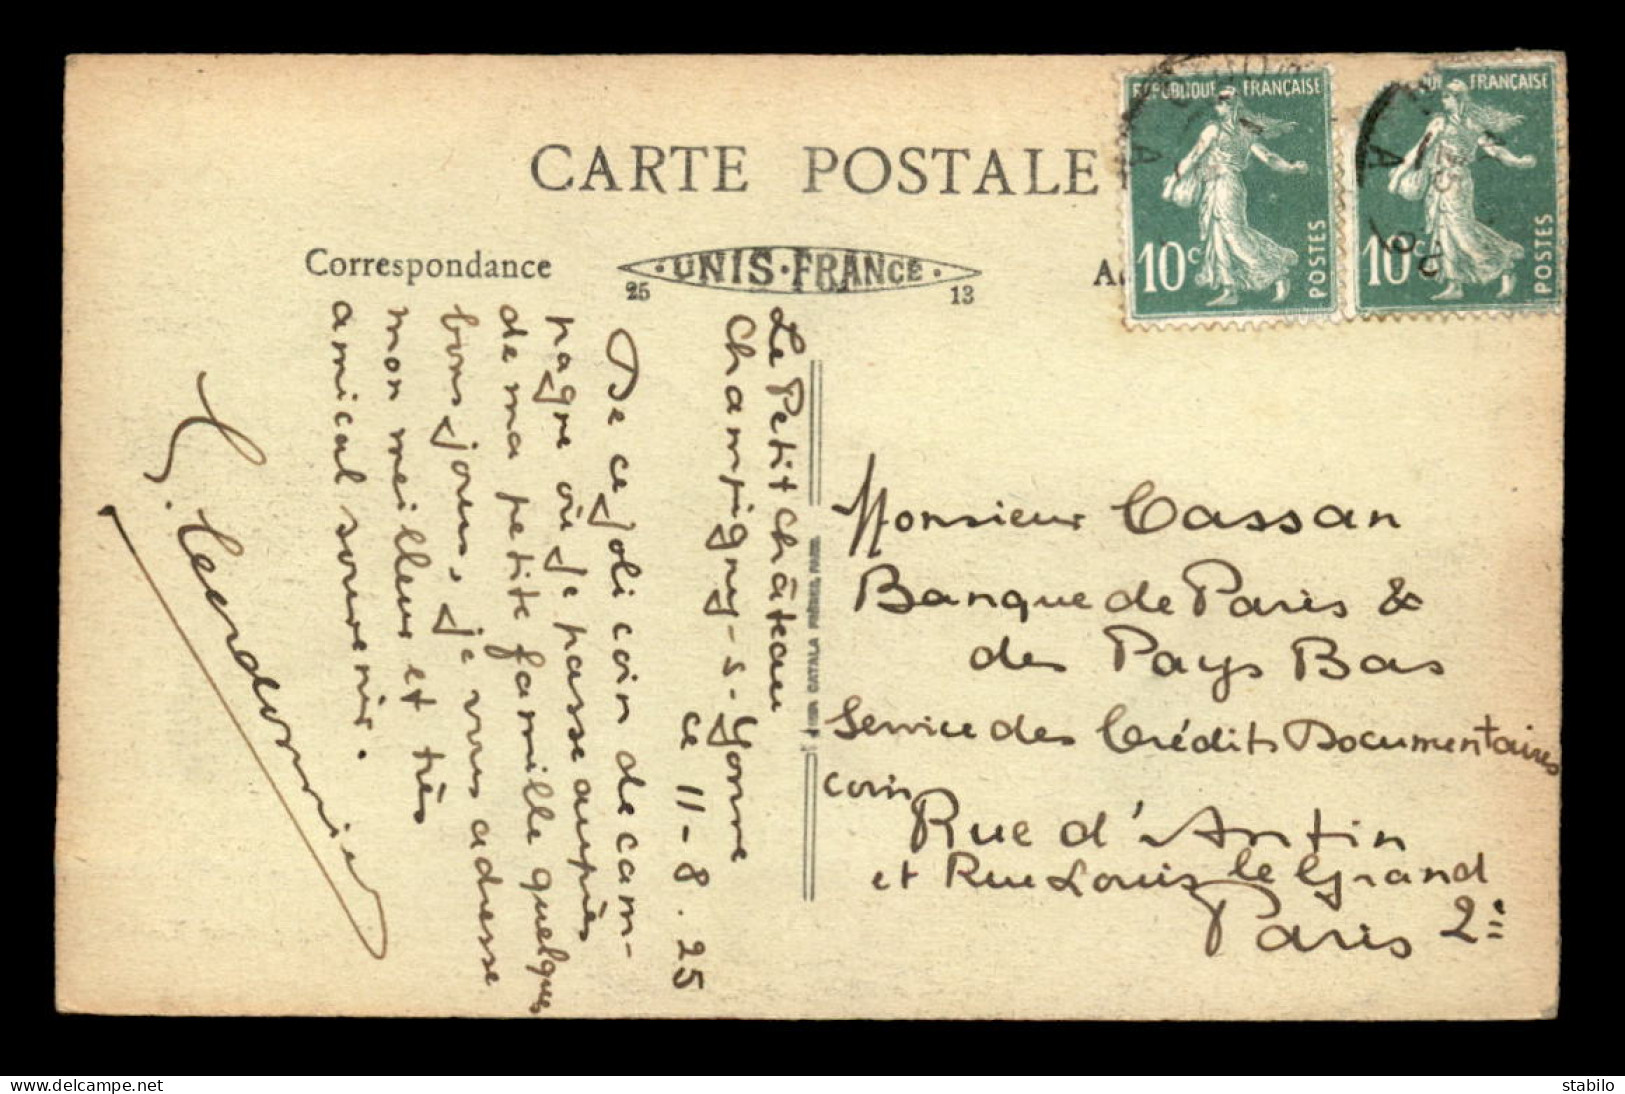 CARTE POSTALE
Correspondance
UNIS·FRANCE·
25 13
RÉPUBLIQUE FRANÇAISE
10c
POSTES
FRANÇAISE
10c
POSTES
Le Petit Château
Champigny-s-Yonne
ce 11-8.25
De ce joli coin de cam-
pagne où je passe auprès
de ma petite famille quelques
bons jours, je vous adresse
mon meilleur et très
amical souvenir.
CATALA FRÈRES, PARIS
Monsieur Cassan
Banque de Paris &
des Pays Bas
Service des Crédits Documentaires
coin
Rue d'Antin
et Rue Louis le Grand
Paris 2e
delcampe.net
stabilo